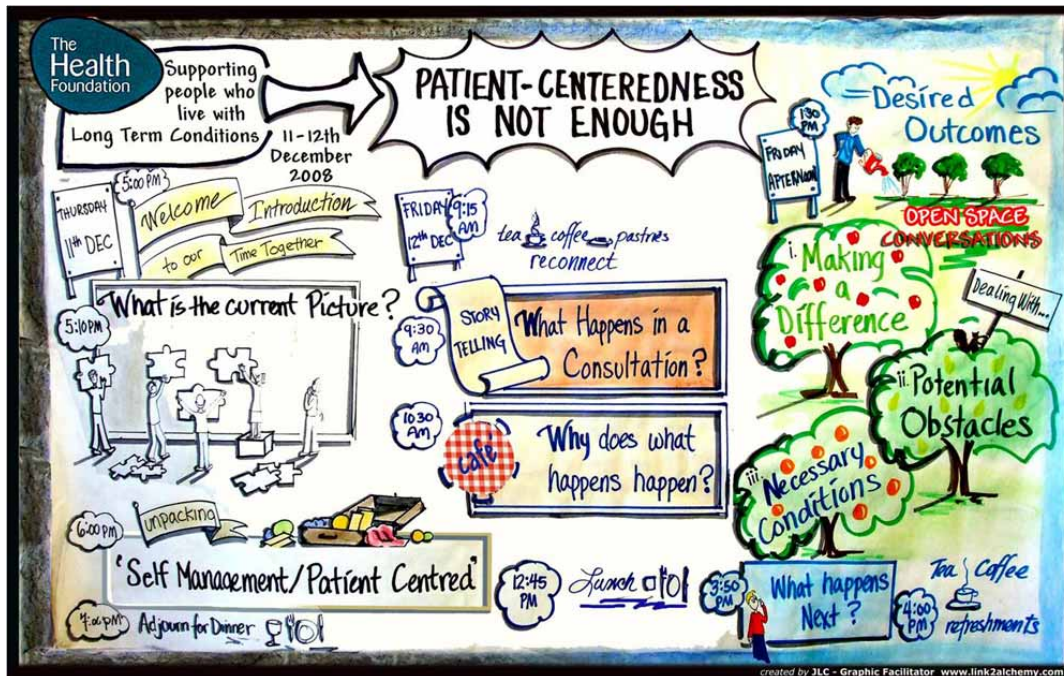 The
Health
Foundation
Supporting
people who
live with
Long Term Conditions
11-12th
December
2008
PATIENT-CENTEREDNESS
IS NOT ENOUGH
THURSDAY
11th DEC
5:00PM
Welcome
Introduction
to our
Time Together
5:10PM
What is the current Picture?
6:00PM
unpacking
"Self Management/Patient Centred"
7:00PM
Adjourn for Dinner
FRIDAY
12th DEC
9:15
AM
tea coffee pastries
reconnect
9:30
AM
STORY
TELLING
What Happens in a
Consultation?
10:30
AM
cafe
Why does what
happens happen?
12:45
PM
Lunch
1:30
PM
FRIDAY
AFTERNOON
Desired
Outcomes
OPEN SPACE
CONVERSATIONS
i. Making
a
Difference
Dealing With...
ii. Potential
Obstacles
iii. Necessary
Conditions
3:50
PM
What happens
Next?
4:00
PM
Tea Coffee
refreshments
created by JLC - Graphic Facilitator www.link2alchemy.com